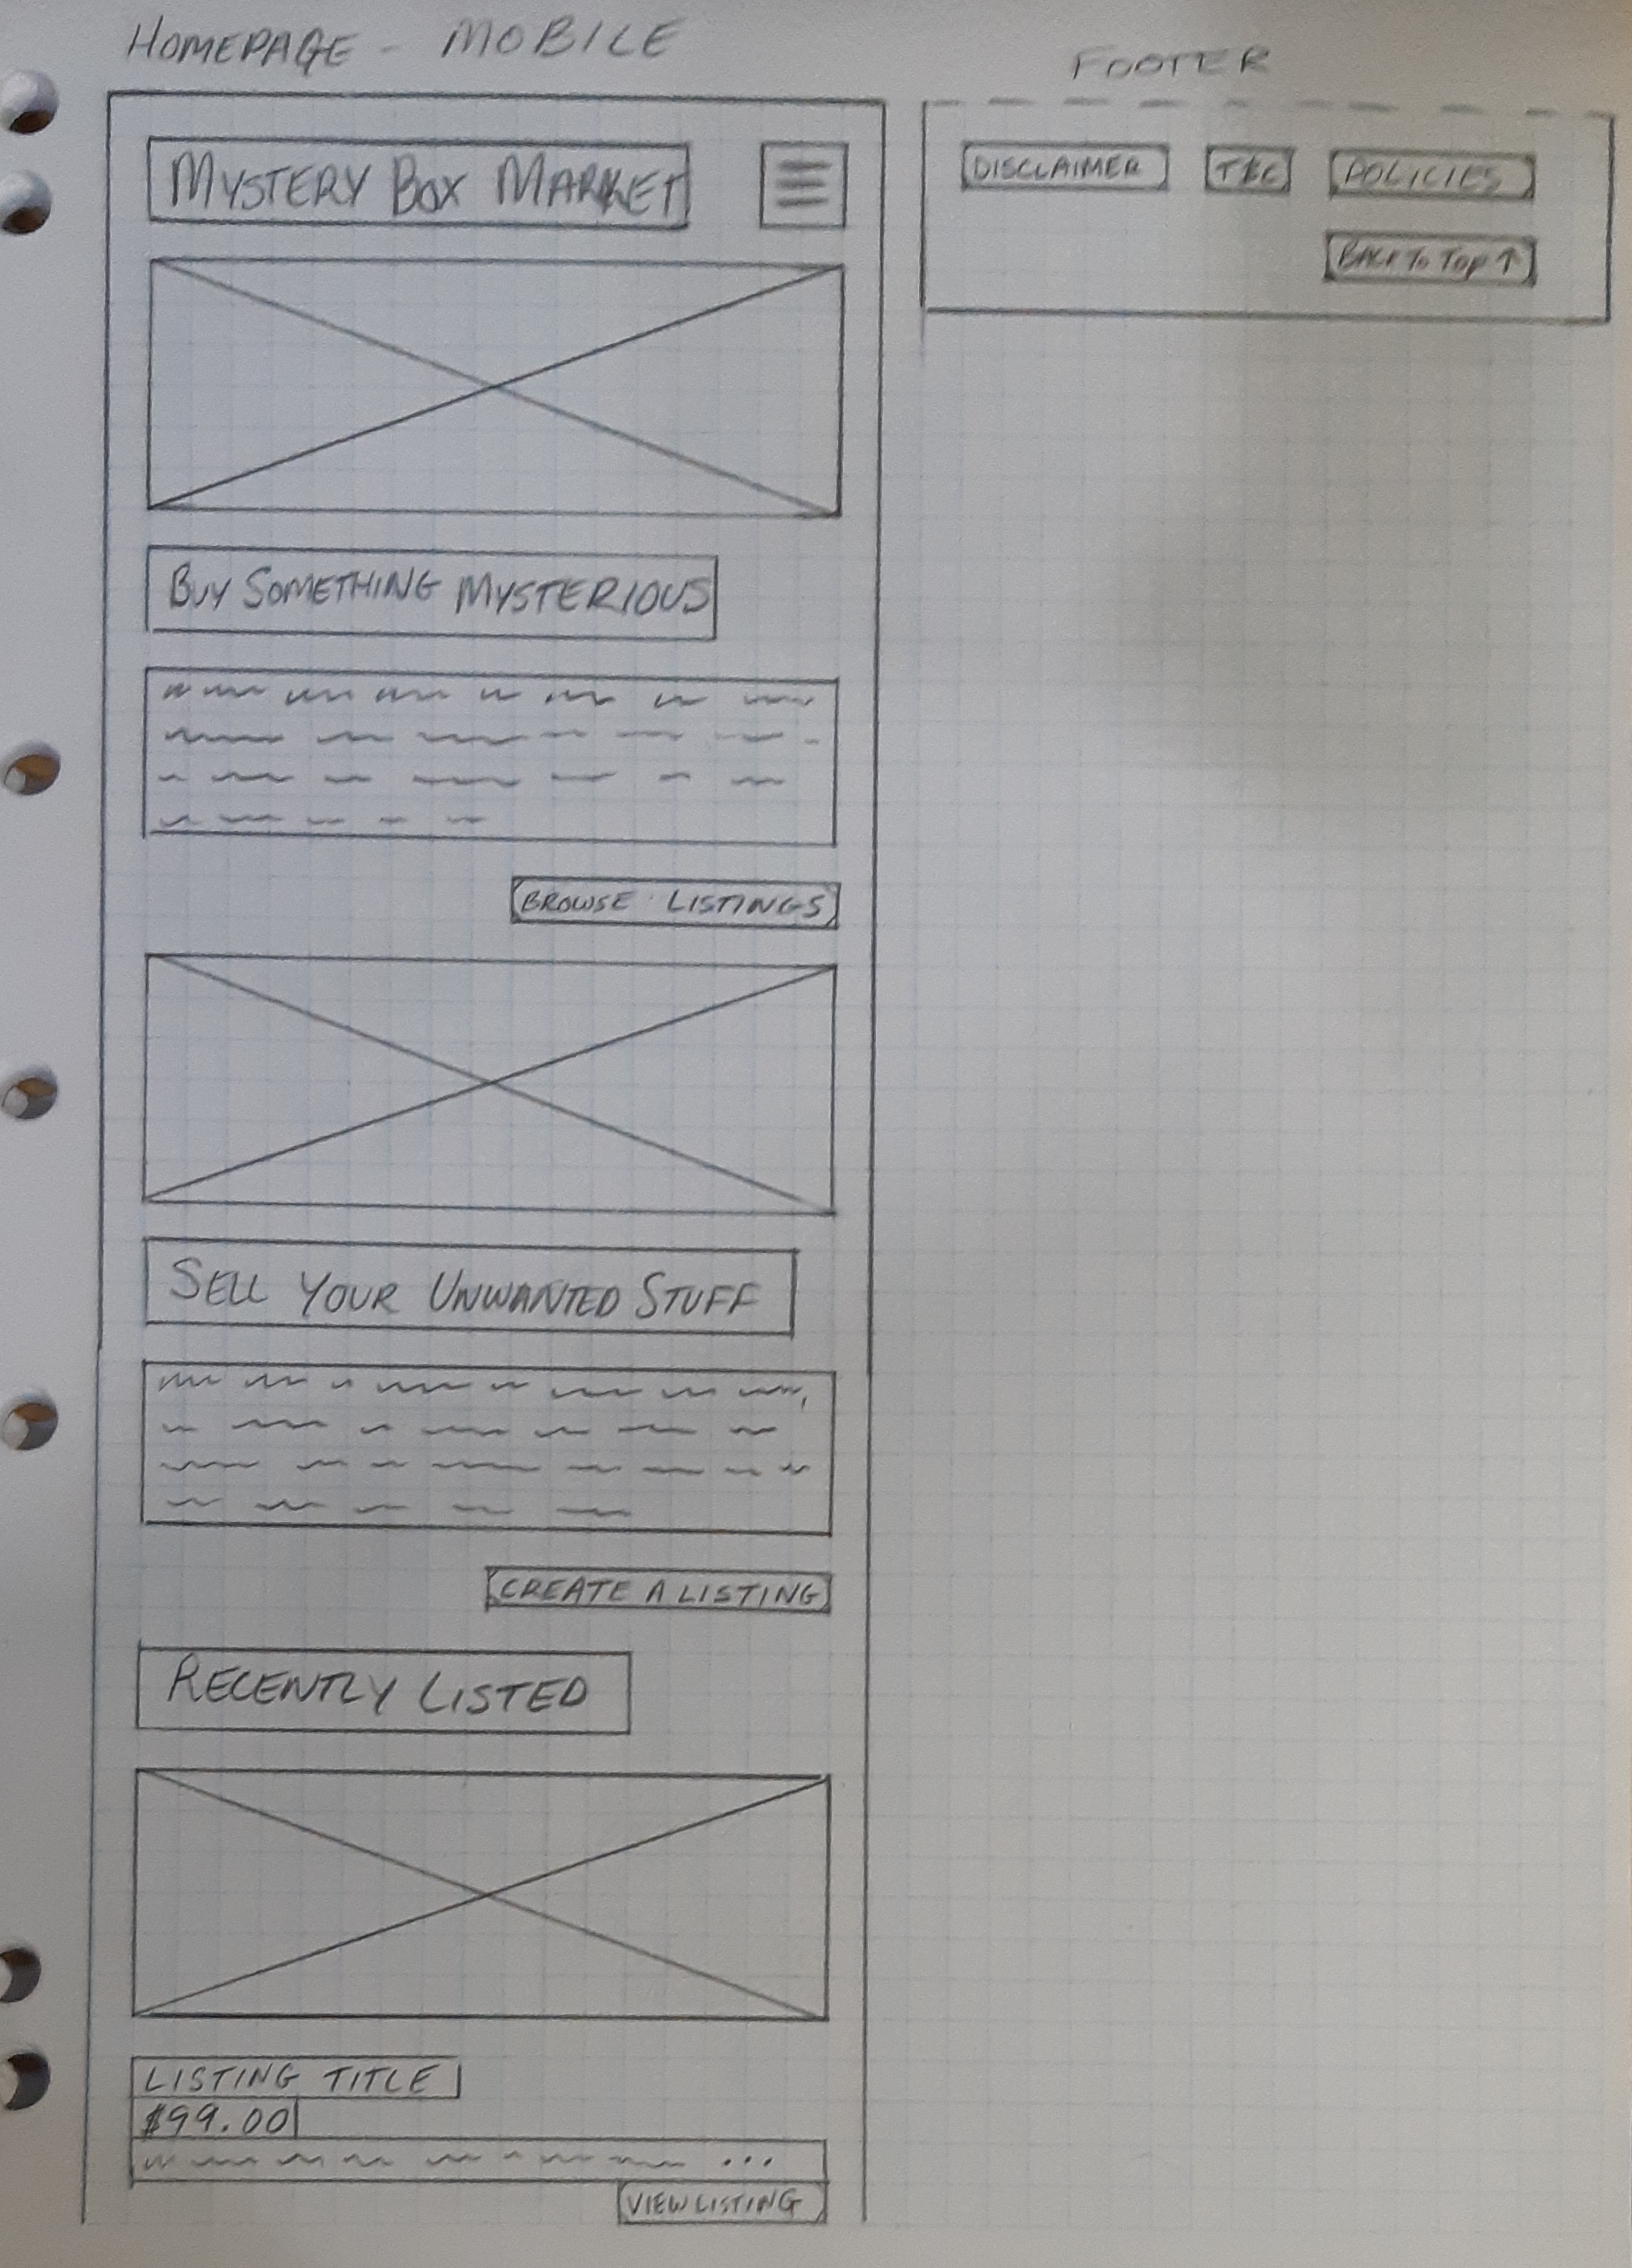 HOMEPAGE - MOBILE
MYSTERY BOX MARKET
BUY SOMETHING MYSTERIOUS
BROWSE LISTINGS
SELL YOUR UNWANTED STUFF
CREATE A LISTING
RECENTLY LISTED
LISTING TITLE
$99.00
...
VIEW LISTING
FOOTER
DISCLAIMER T&C POLICIES
BACK TO TOP ↑